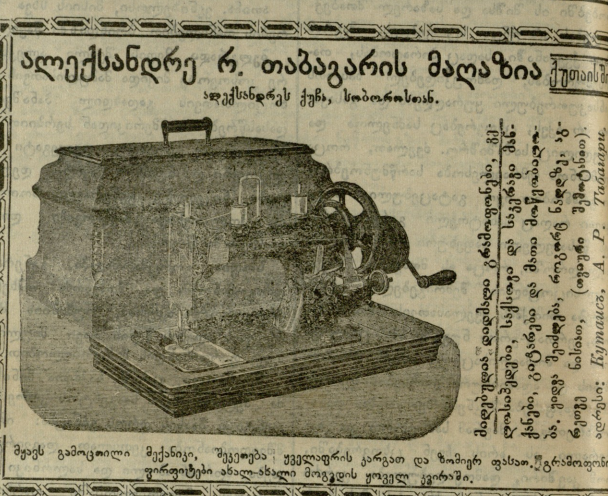 ალექსანდრე რ. თაბაგარის მაღაზია ქუთაისში
ალექსანდრეს ქუჩა, სობოროსთან.
მიღებულია დიდძალი გრამოფონები, ველოსიპედები, საქსოვი და საკერავი მანქანები, გიტარები და მათი მოწყობილობა, ყიდვა შეიძლება, როგორც ნაღდზე, აგრეთვე ნისიათ, (თვიური შემოტანით).
ადრესი: Кутаисъ, А. Р. Табагари.
მყავს გამოცდილი მექანიკი, შეკეთება ყველაფრის კარგათ და ზომიერ ფასათ. გრამოფონ
ფირფიტები ახალ-ახალი მოგვდის ყოველ კვირაში.